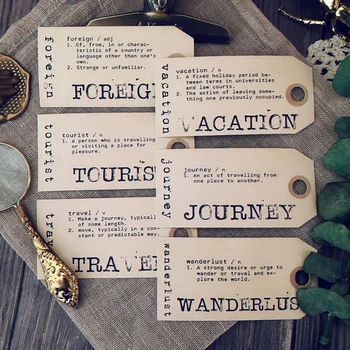 foreign
foreign / adj
1. Of, from, in or charac-
teristic of a country or
language other than one's
own.
2. Strange or unfamiliar.
FOREIG
vacation
vacation / n
1. A fixed holiday period be-
tween terms in universities
and law courts.
2. The action of leaving some-
thing one previously occupied.
VACATION
tourist
tourist / n
1. a person who is travelling
or visiting a place for
pleasure.
TOURIS
journey
journey / n
1. An act of travelling from
one place to another.
JOURNEY
tra
travel / v
1. Make a journey, typical
of some length.
2. move, typically in a con
stant or predictable way.
TRAVE
wanderlust
wanderlust / n
1. A strong desire or urge to
wander or travel and ex-
plore the world.
WANDERLUS